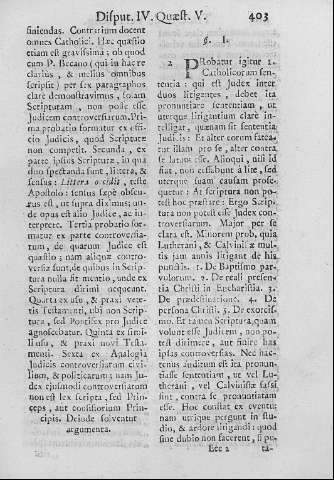 Disput. IV. Quæst. V. 403
finiendas. Contrarium docent
omnes Catholici. Hæc quæstio
etiam est gravissima; ob quod
cum P. Becano (qui in hac re
clarius, & melius omnibus
scripsit) per sex paragraphos
clare demonstravimus, solam
Scripturam, non posse esse
Judicem controversiarum. Pri-
ma probatio formatur ex offi-
cio Judicis, quod Scripturæ
non competit. Secunda, ex
parte ipsius Scripturæ, in qua
duo spectanda sunt, littera, &
sensus: Littera occidit, teste
Apostolo: sensus sæpe obscu-
rus est, ut supra diximus; un-
de opus est alio Judice, ac in-
terprete. Tertia probatio for-
matur ex parte controversia-
rum, de quarum Judice est
quæstio; nam aliquæ contro-
versiæ sunt, de quibus in Scrip-
tura nulla fit mentio, unde ex
Scriptura dirimi nequeant.
Quarta ex usu, & praxi vete-
ris Testamenti, ubi non Scrip-
tura, sed Pontifex pro Judice
agnoscebatur. Quinta ex simi-
li usu, & praxi novi Testa-
menti. Sexta ex Analogia
Judicis controversiarum civi-
lium, & politicarum; nam Ju-
dex ejusmodi controversiarum
non est lex scripta, sed Prin-
ceps, aut consistorium Prin-
cipis. Deinde solventur
argumenta.
§. I.
2 PRobatur igitur 1.
Catholicorum sen-
tentia: qui est Judex inter
duos litigantes, debet ita
pronuntiare sententiam, ut
uterque litigantium clare in-
telligat, quænam sit sententia
Judicis: Et alter eorum fatea-
tur illam pro se, alter contra
se latam esse. Alioqui, nisi id
fiat, non cessabunt à lite, sed
uterque suam causam prose-
quetur: At scriptura non po-
test hoc præstare: Ergo Scrip-
tura non potest esse Judex con-
troversiarum. Major per se
clara est. Minorem prob. quia
Lutherani, & Calvini æ mul-
tis jam annis litigant de his
punctis. 1. De Baptismo par-
vulorum. 2. De reali præsen-
tia Christi in Eucharistia. 3.
De prædestinatione. 4. De
persona Christi. 5. De exorcis-
mo. Et tamen Scriptura, quam
volunt esse Judicem, non po-
test dirimere, aut finire has
ipsas controversias. Nec hac-
tenus auditum est ita pronun-
tiasse sententiam, ut vel Lu-
therani, vel Calvinistæ fassi
sint, contra se pronuntiatam
esse. Hoc constat ex eventu;
nam utrique pergunt in stu-
dio, & ardore litigandi: quod
sine dubio non facerent, si pu-
Eee 2 ta-